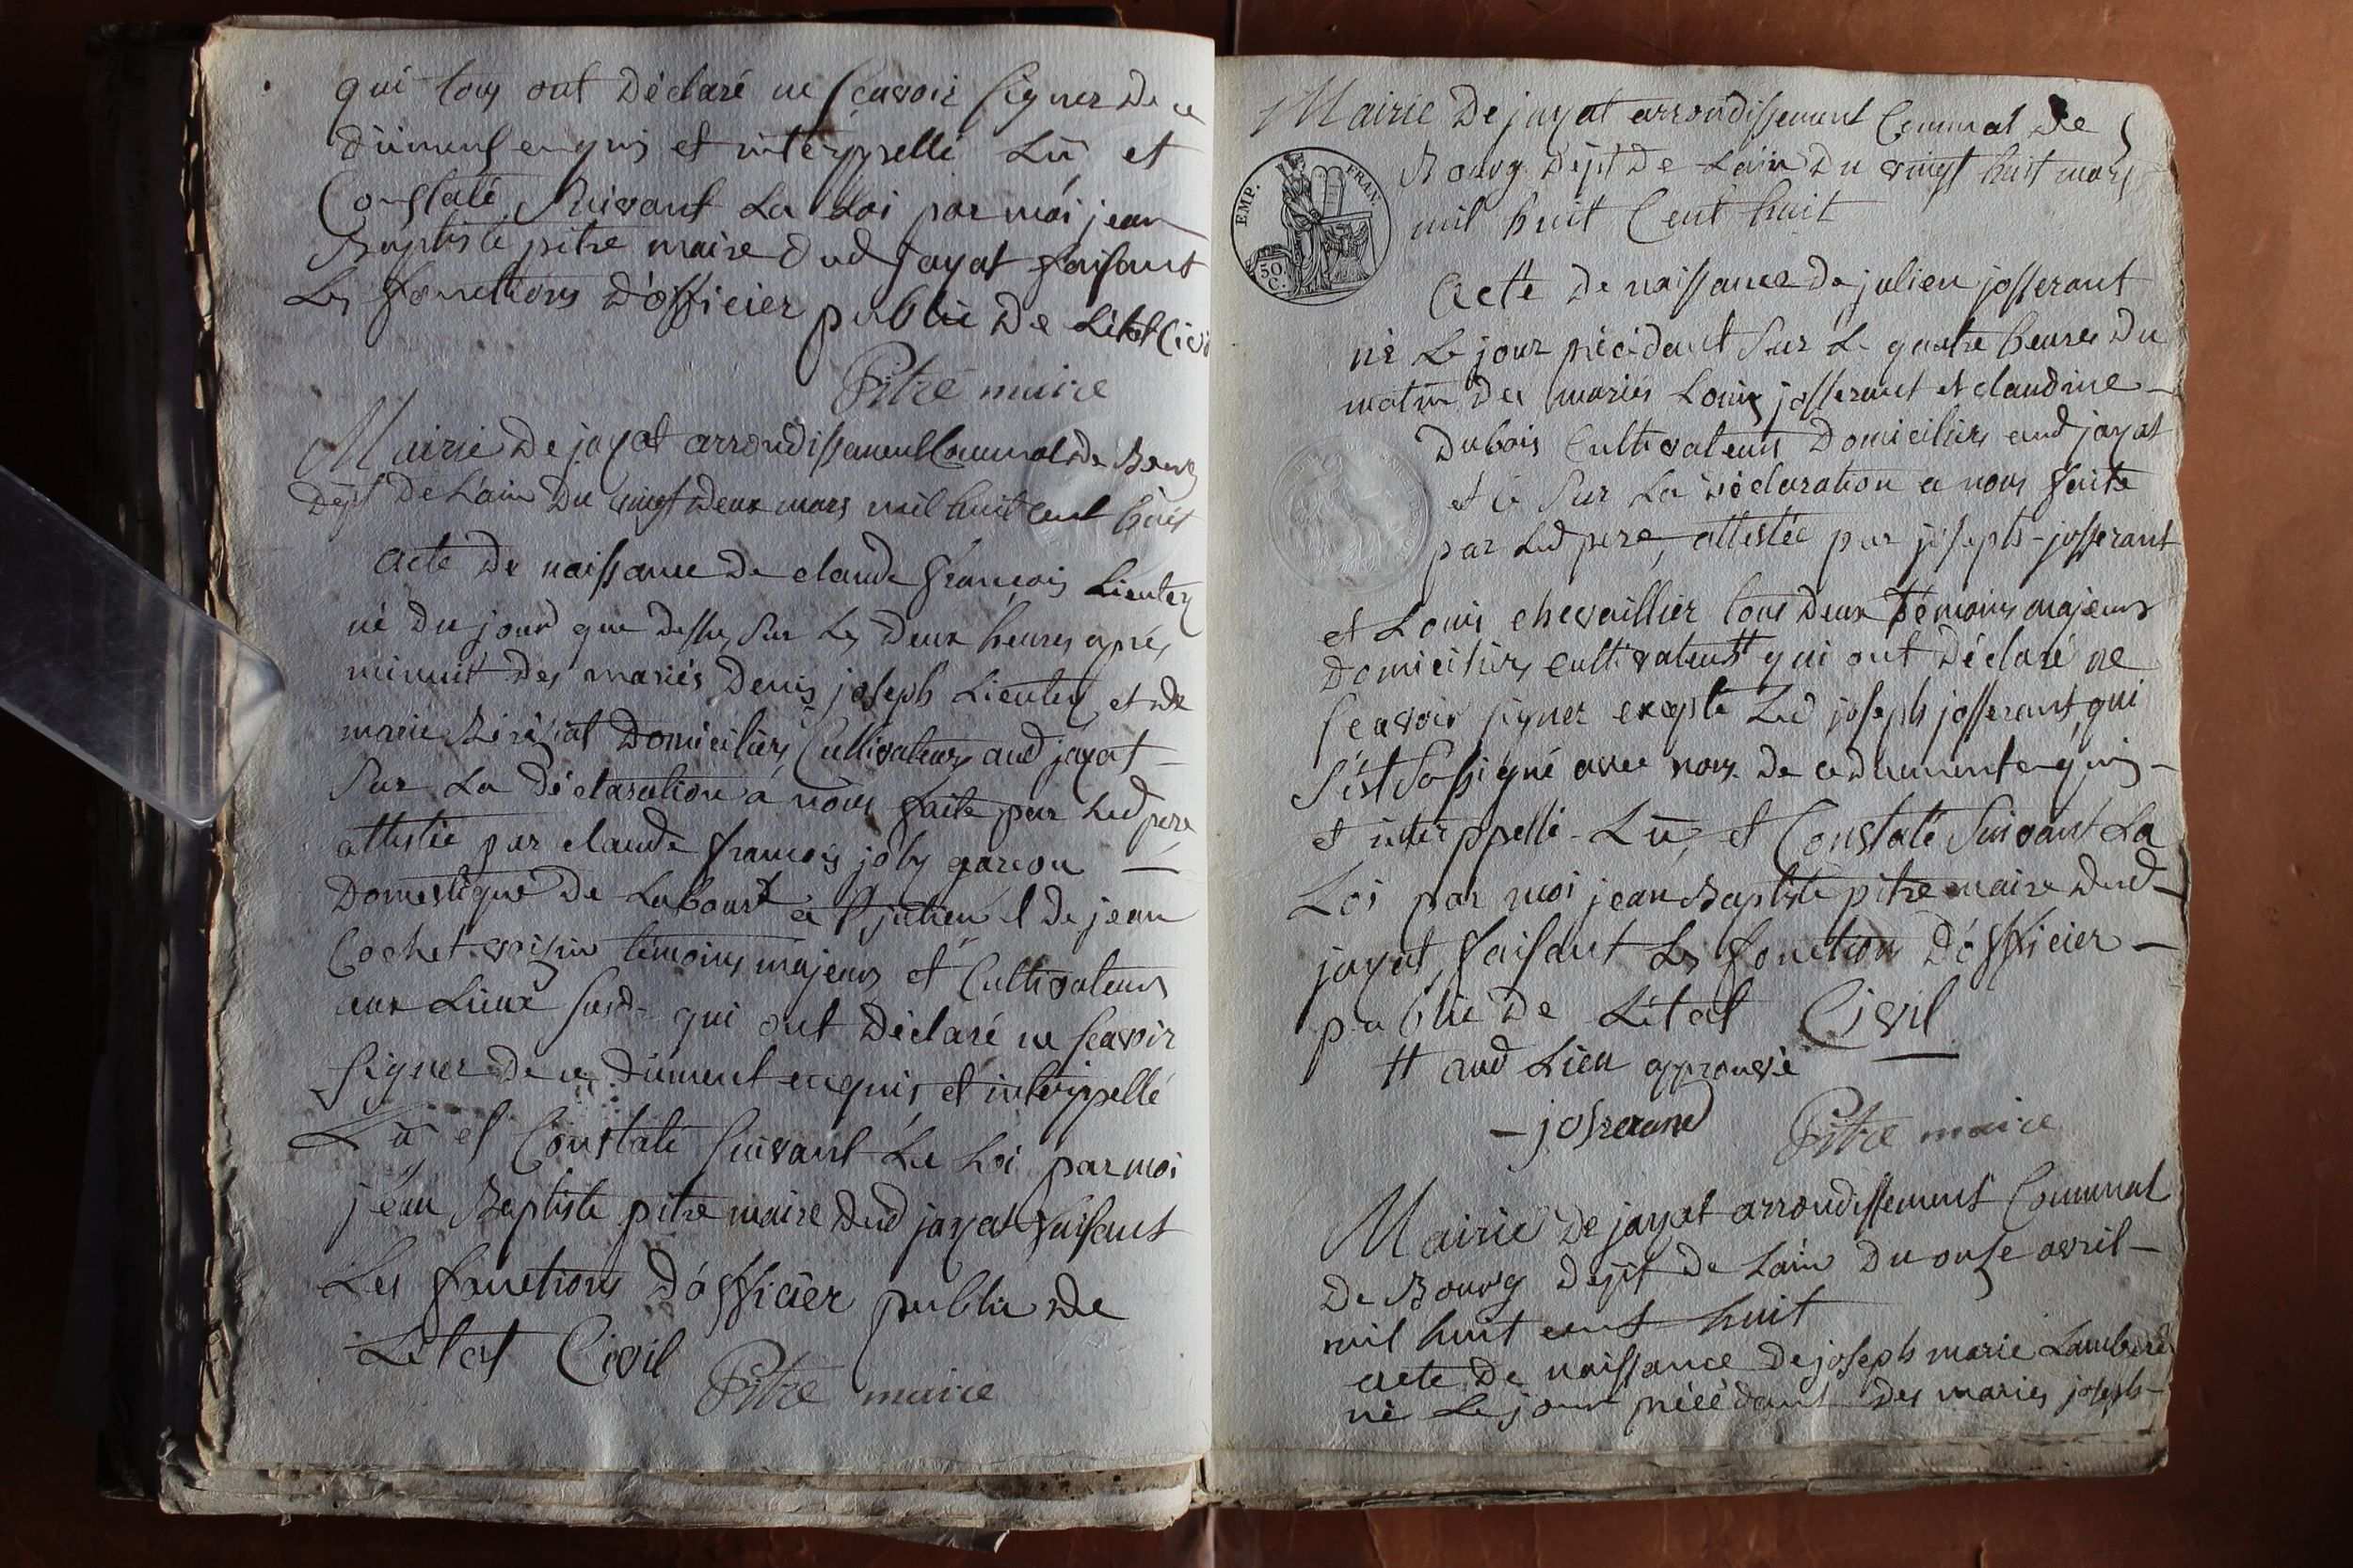 qui tous ont déclaré ne scavoir signer de ce
dûment enquis et interppellé Lû et
Constaté Suivant La Loi par moi jean
Baptiste pitre maire dud jayat faisant
Les fonctions d'officier public de Létat Civi
Pitre maire
Mairie de jayat arrondissement Communal de Bourg
dépt de L'ain du vingt deux mars mil huit cent huit
acte de naissance de claude françois Lienter
né du jourd que dessus, sur Les deux heures après
minuit des mariés denis joseph Lienter et de
marie domiciliés Cultivateurs aud jayat
Sur La déclaration à nous faite par Led pere
attestée par claude francois joly garcon
domestique de Labour à St julien et de jean
Cochet voisin témoins majeurs et Cultivateurs
aux Lieux susd. qui ont déclaré ne scavoir
signer de ce dument enquis et interppellé
Lû et Constaté suivant La Loi par moi
jean Baptiste pitre maire dud jayat faisant
Les fonctions d'officier public de
Létat Civil
Pitre maire
Mairie de jayat arrondissement Communal de
Bourg dépt de Lain du vingt huit mars
mil huit Cent huit
EMP. FRAN.
50 C.
Acte de naissance de julien josserant
né Le jour précédant sur Le quatre heures du
matin des mariés Louis josserant et claudine
dubois Cultivateurs domiciliés aud jayat
et ce sur La déclaration a nous faite
par Led pere, attestée par joseph josserant
et Louis chevaillier tous deux témoins majeurs
domiciliés cultivateurs # qui ont déclaré ne
scavoir signer excepté Led joseph josserant, qui
s'est sossigné avec nous de ce dument enquis
et interppellé Lû, et Constaté suivant La
Loi par moi jean Baptiste pitre maire dud
jayat faisant Les fonction d'officier
public de Létat Civil
# aud Lieu approuvé
josserand
Pitre maire
Mairie de jayat arrondissement Communal
de Bourg dépt de Lain du onse avril
mil huit cent huit
acte de naissance de joseph marie Lamberd
né Le jour précédant des mariés joseph